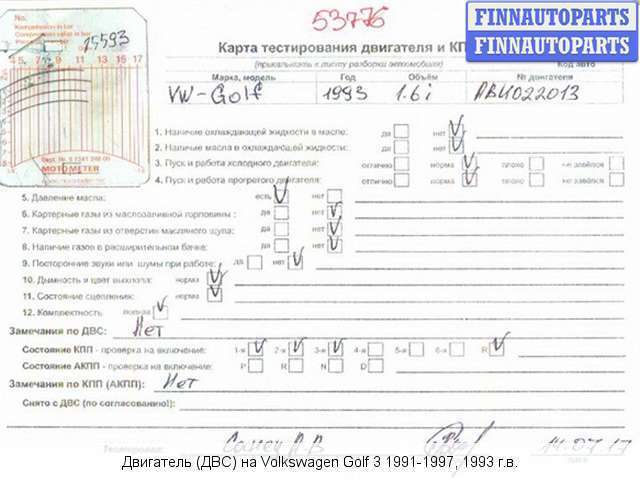 No.
53776
15593
FINNAUTOPARTS
FINNAUTOPARTS
Карта тестирования двигателя и КП
(прикалывать к листу разборки автомобиля)
Код авто
Марка, модель Год Объём № двигателя
VW-Golf 1993 1.6i ABU022013
4 5 17
MOTOMETER
1. Наличие охлаждающей жидкости в масле: да нет
2. Наличие масла в охлаждающей жидкости: да нет
3. Пуск и работа холодного двигателя: отлично норма плохо не завёлся
4. Пуск и работа прогретого двигателя: отлично норма плохо не завёлся
5. Давление масла: есть нет
6. Картерные газы из маслозаливной горловины: да нет
7. Картерные газы из отверстия масляного щупа: да нет
8. Наличие газов в расширительном бачке: да нет
9. Посторонние звуки или шумы при работе: да нет
10. Дымность и цвет выхлопа: норма
11. Состояние сцепления: норма
12. Комплектность полная
Замечания по ДВС: Нет
Состояние КПП - проверка на включение: 1-я 2-я 3-я 4-я 5-я 6-я R
Состояние АКПП - проверка на включение: P R N D
Замечания по КПП (АКПП): Нет
Снято с ДВС (по согласованию!):
14.07.17
Двигатель (ДВС) на Volkswagen Golf 3 1991-1997, 1993 г.в.